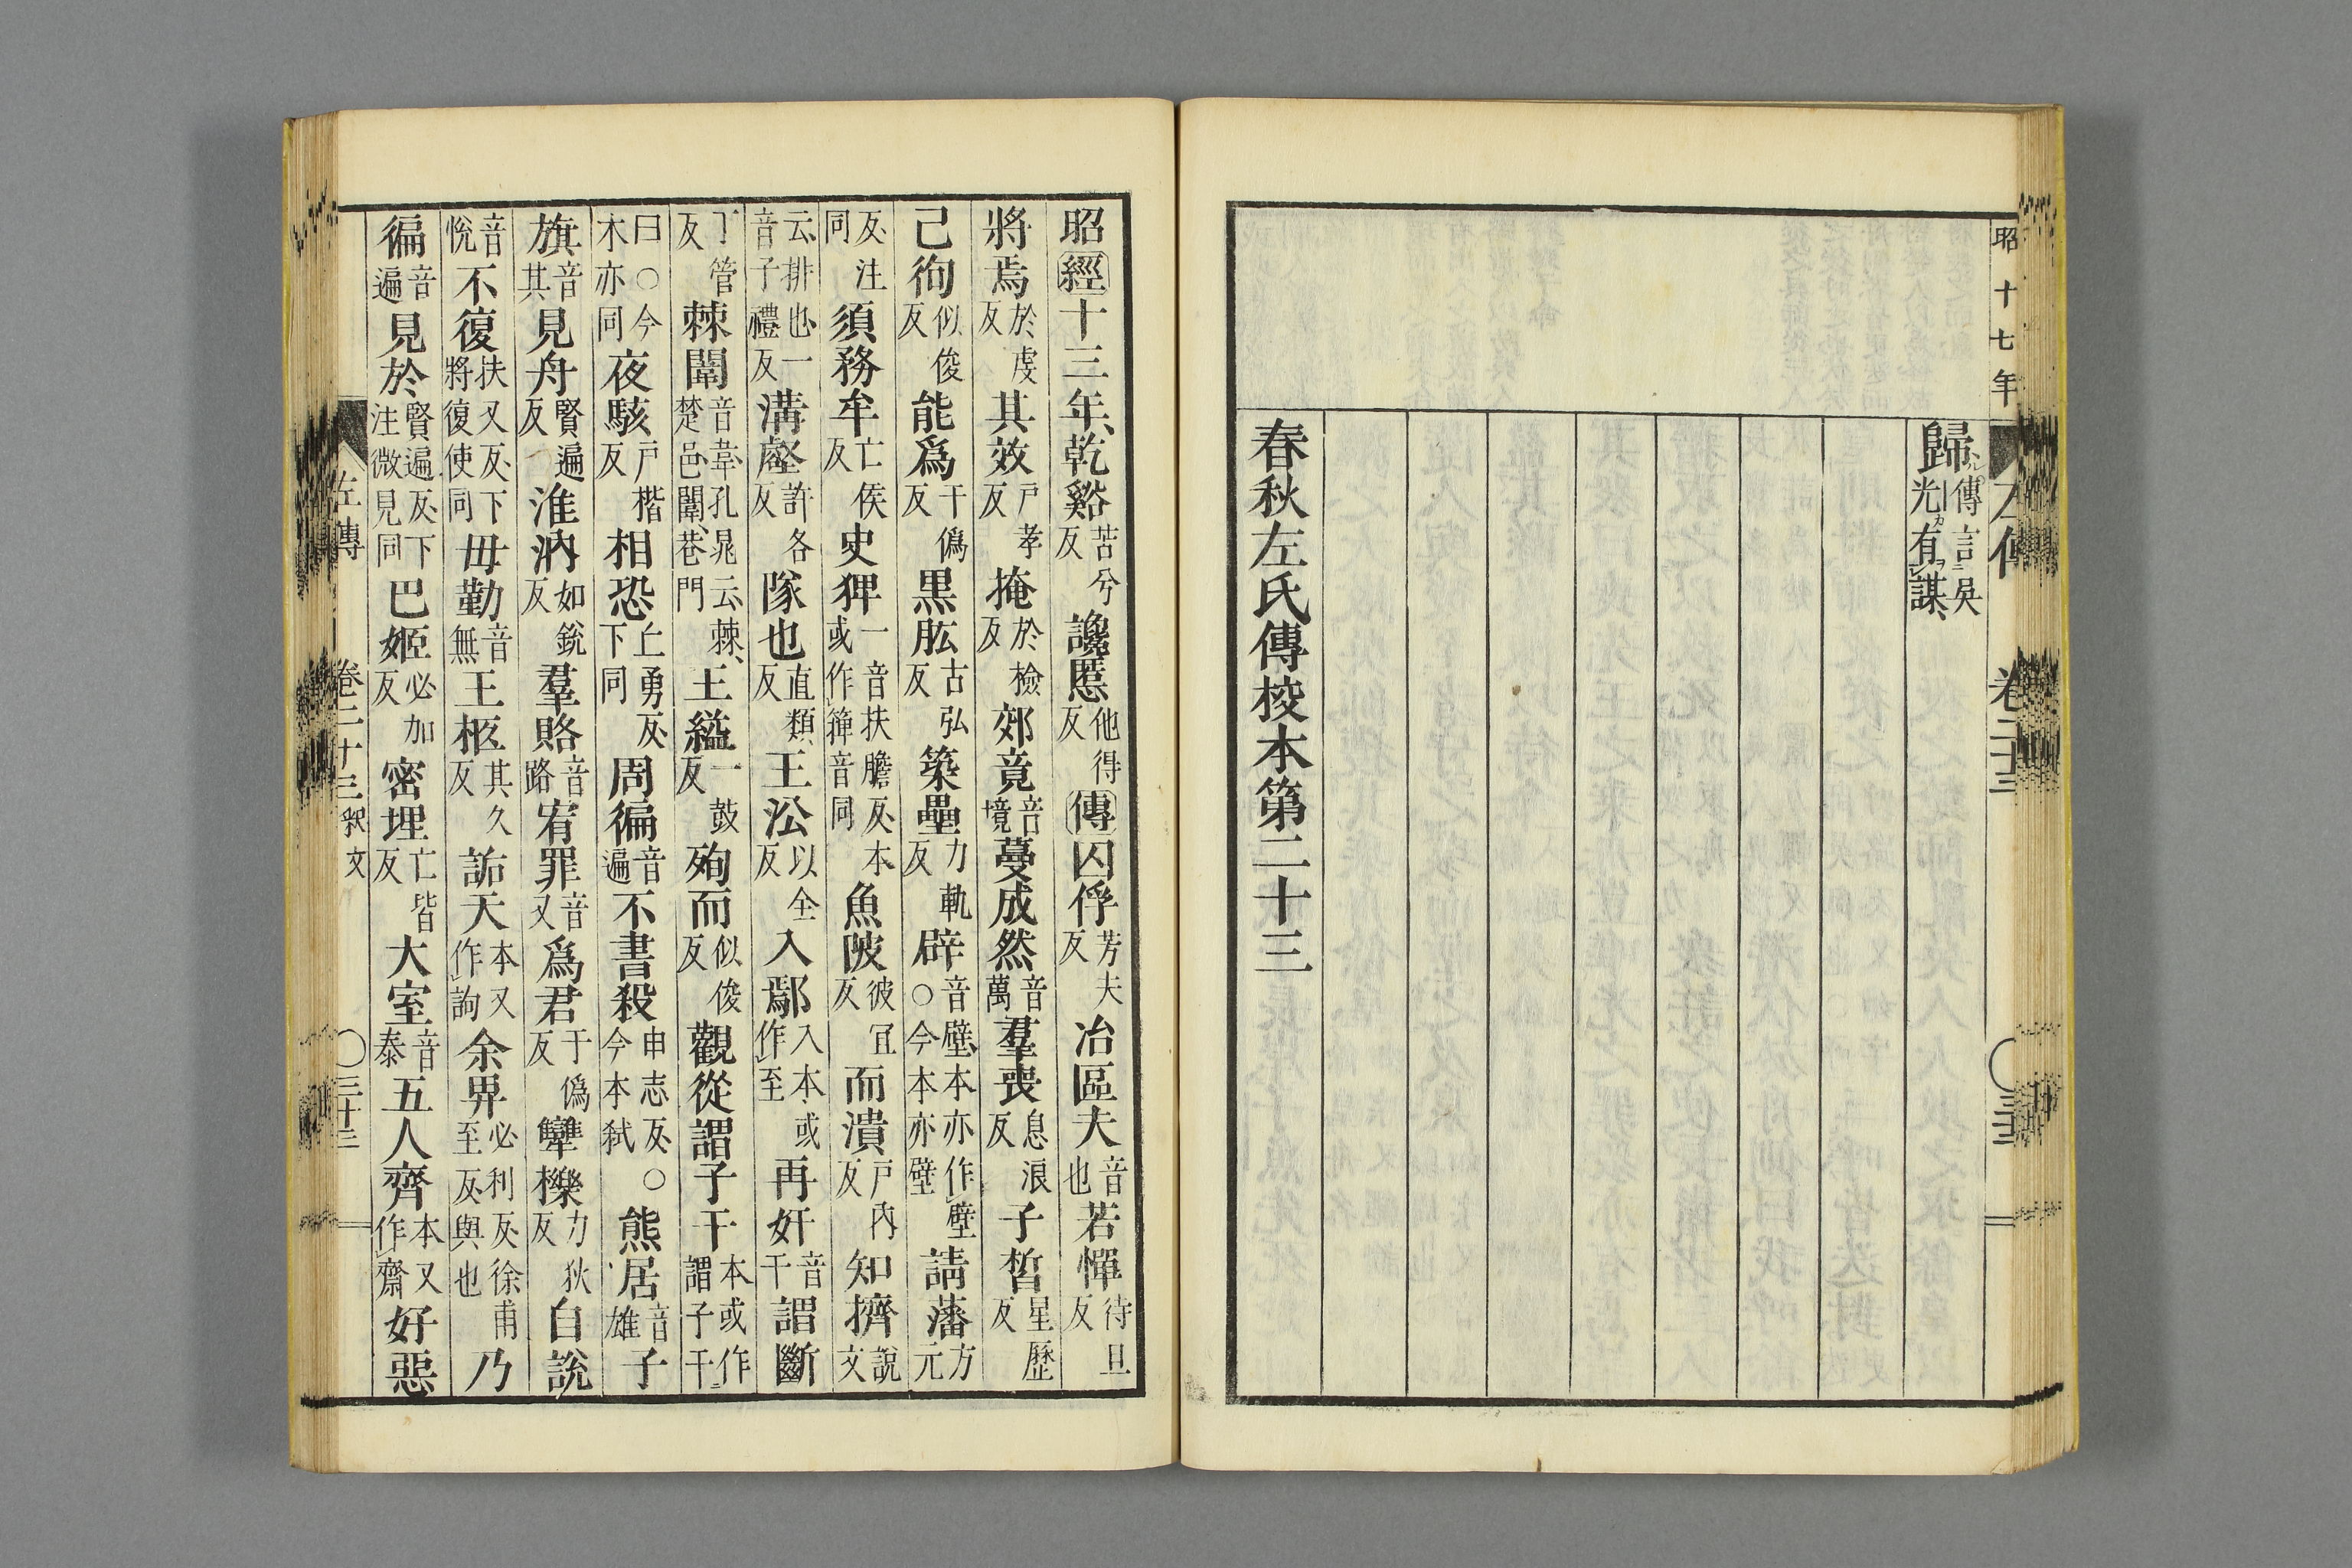 昭十七年
歸傳言吳光有謀
春秋左氏傳校本第二十三
昭經十三年乾谿苦兮反讒慝他得反傳囚俘芳夫反冶區夫音也若憚待旦反
將焉於虔反其效戶孝反掩於檢反郊竟音境蔓成然音萬羣喪息浪反子皙星歷反
己徇似俊反能爲于僞反黒肱古弘反築壘力軌反辟音壁本亦作壁○今本亦壁請藩方元
反注同須務牟亡侯反史猈一音扶瞻反本或作簰音同魚陂彼冝反而潰戶內反知擠說文
云排也一音子禮反溝壑許各反隊也直類反王㳂以全反入鄢入本或作至再奸音干謂斷
丁管反棘闈音韋孔晁云棘楚邑闈巷門王縊一豉反殉而似俊反觀從謂子干本或作謂子干
曰○今木亦同夜駭戶楷反相恐丘勇反下同周徧音遍不書殺申志反○今本弑熊居音雄子
旗音其見舟賢遍反淮汭如銳反羣賂音路宥罪音又爲君于僞反犫櫟力狄反自說
音悅不復扶又反下將復使同毋勤音無王柩其久反詬天本又作詢余畀必利反徐甫至反與也乃
徧音遍見於賢遍反下注微見同巴姬必加反密埋亡皆反大室音泰五人齊本又作齋好惡
左傳 卷二十三釈文 ○三十三